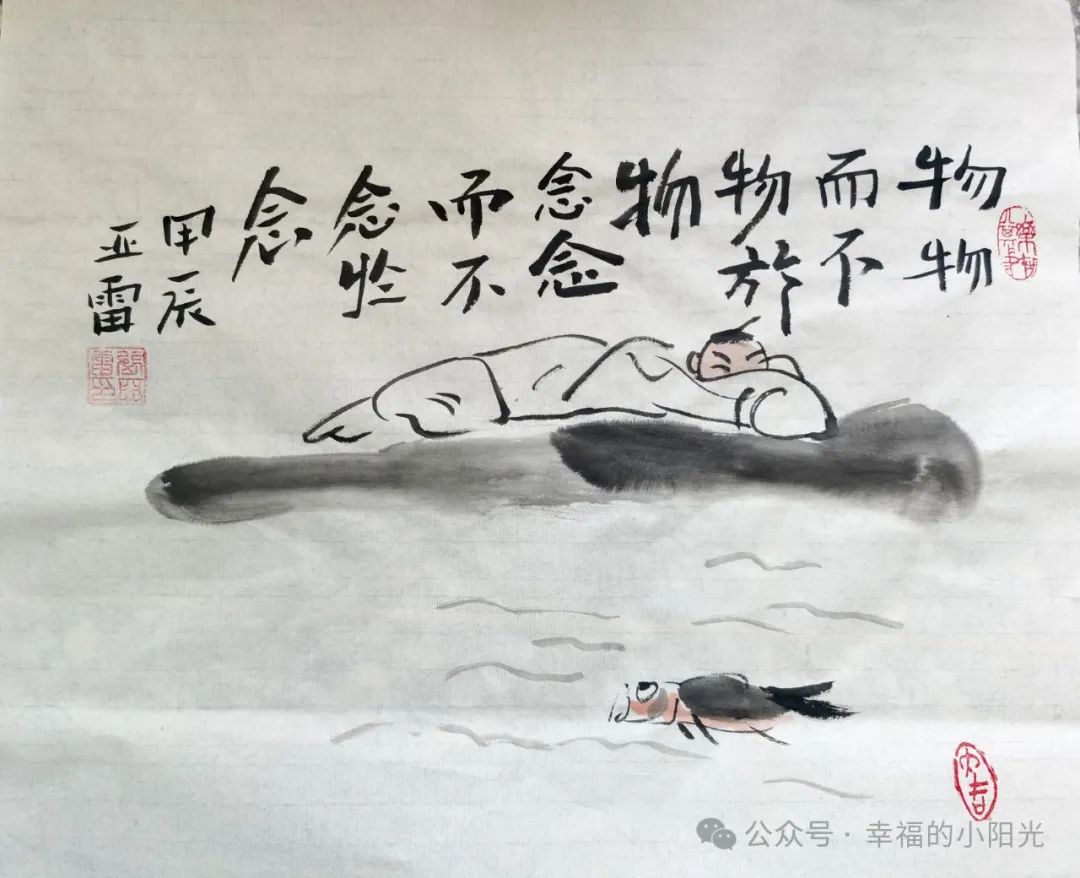 物物
而不
物於
物
念念
而不
念於
念
甲辰
亚雷
大吉
公众号 · 幸福的小阳光